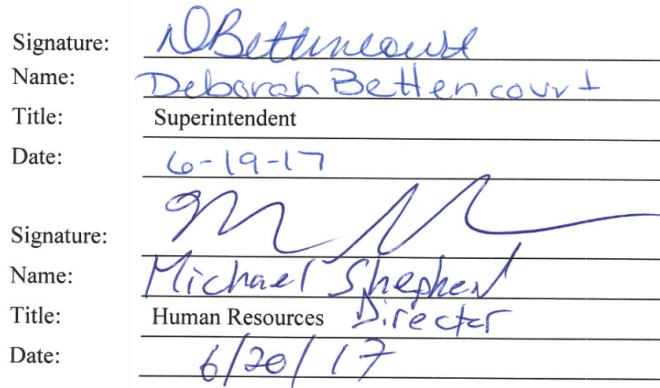 Signature: DBettencourt
Name: Deborah Bettencourt
Title: Superintendent
Date: 6-19-17
Signature:
Name: Michael Shepherd
Title: Human Resources Director
Date: 6/20/17